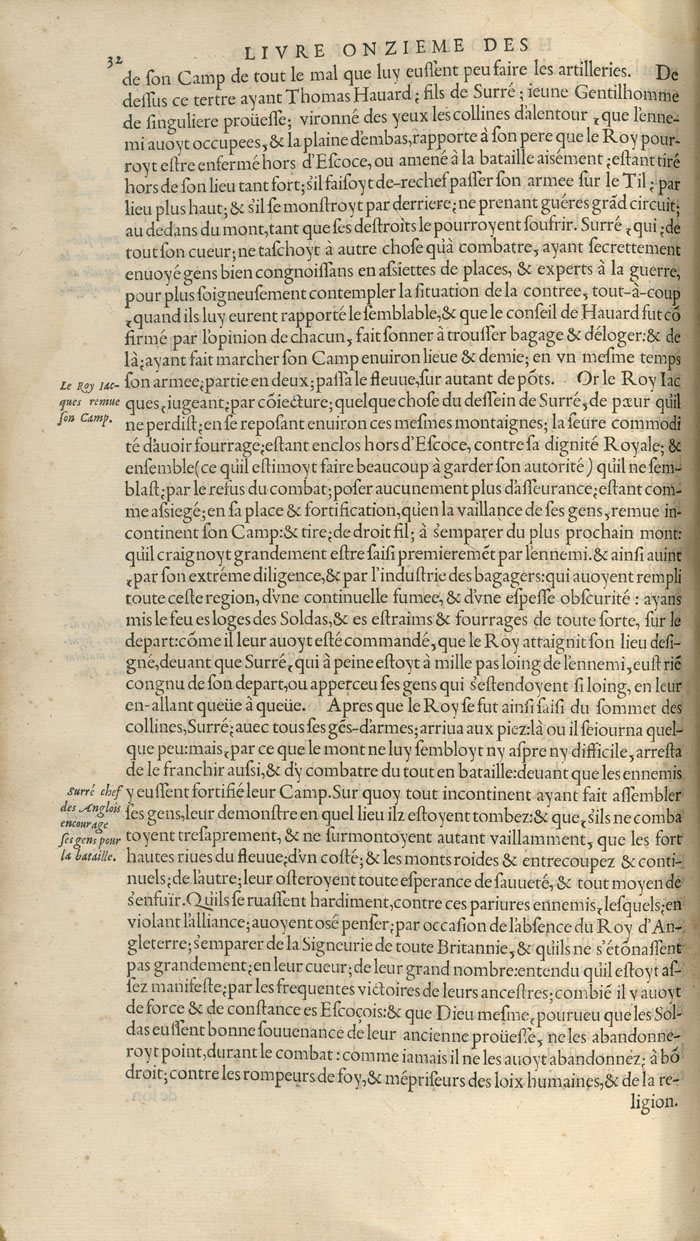 32
LIVRE ONZIEME DES
de ſon Camp de tout le mal que luy euſſent peu faire les artilleries. De
deſſus ce tertre ayant Thomas Hauard; fils de Surré; ieune Gentilhomme
de ſinguliere proüeſſe; vironné des yeux les collines d'alentour, que l'enne-
mi auoyt occupees, & la plaine d'embas, rapporte à ſon pere que le Roy pour-
royt eſtre enfermé hors d'Eſcoce, ou amené à la bataille aisément; eſtant tiré
hors de ſon lieu tant fort; s'il faiſoyt de-rechef paſſer ſon armee ſur le Til; par
lieu plus haut; & s'il ſe monſtroyt par derriere; ne prenant guéres grād circuit;
au dedans du mont, tant que ſes deſtroits le pourroyent ſoufrir. Surré, qui; de
tout ſon cueur; ne taſchoyt à autre choſe qu'à combatre, ayant ſecrettement
enuoyé gens bien congnoiſſans en aſsiettes de places, & experts à la guerre,
pour plus ſoigneuſement contempler la ſituation de la contree, tout-à-coup
, quand ils luy eurent rapporté le ſemblable, & que le conſeil de Hauard fut cō
firmé par l'opinion de chacun, fait ſonner à trouſſer bagage & déloger: & de
là; ayant fait marcher ſon Camp enuiron lieue & demie; en vn meſme temps
Le Roy Iac-
ques remue
ſon Camp.
ſon armee; partie en deux; paſſa le fleuue, ſur autant de pōts. Or le Roy Iac
ques, iugeant; par cōiecture; quelque choſe du deſſein de Surré, de pœur qu'il
ne perdiſt; en ſe repoſant enuiron ces meſmes montaignes; la ſeure commodi
té d'auoir fourrage; eſtant enclos hors d'Eſcoce, contre ſa dignité Royale; &
enſemble (ce qu'il eſtimoyt faire beaucoup à garder ſon autorité) qu'il ne ſem-
blaſt; par le refus du combat; poſer aucunement plus d'aſſeurance; eſtant com-
me aſsiegé; en ſa place & fortification, qu'en la vaillance de ſes gens, remue in-
continent ſon Camp: & tire; de droit fil; à s'emparer du plus prochain mont:
qu'il craignoyt grandement eſtre ſaiſi premieremēt par l'ennemi. & ainſi auint
, par ſon extréme diligence, & par l'induſtrie des bagagers: qui auoyent rempli
toute ceſte region, d'vne continuelle fumee, & d'vne eſpeſſe obſcurité : ayans
mis le feu es loges des Soldas, & es eſtraims & fourrages de toute ſorte, ſur le
depart: cōme il leur auoyt eſté commandé, que le Roy attaignit ſon lieu deſi-
gné, deuant que Surré, qui à peine eſtoyt à mille pas loing de l'ennemi, euſt riē
congnu de ſon depart, ou apperceu ſes gens qui s'eſtendoyent ſi loing, en leur
en-allant queüe à queüe. Apres que le Roy ſe fut ainſi ſaiſi du ſommet des
collines, Surré; auec tous ſes gēs-d'armes; arriua aux piez: là ou il ſeiourna quel-
que peu: mais, par ce que le mont ne luy ſembloyt ny aſpre ny difficile, arreſta
de le franchir auſsi, & d'y combatre du tout en bataille: deuant que les ennemis
Surré chef
des Anglois
encourage
ſes gens pour
la bataille.
y euſſent fortifié leur Camp. Sur quoy tout incontinent ayant fait aſſembler
ſes gens, leur demonſtre en quel lieu ilz eſtoyent tombez: & que, s'ils ne comba
toyent treſaprement, & ne ſurmontoyent autant vaillamment, que les fort
hautes riues du fleuue; d'vn coſté; & les monts roides & entrecoupez & conti-
nuels; de l'autre; leur oſteroyent toute eſperance de ſauueté, & tout moyen de
s'enfuïr. Qu'ils ſe ruaſſent hardiment, contre ces pariures ennemis, leſquels; en
violant l'alliance; auoyent osé penſer; par occaſion de l'abſence du Roy d'An-
gleterre; s'emparer de la Signeurie de toute Britannie, & qu'ils ne s'étōnaſſent
pas grandement; en leur cueur; de leur grand nombre: entendu qu'il eſtoyt aſ-
ſez manifeſte; par les frequentes victoires de leurs anceſtres; combiē il y auoyt
de force & de conſtance es Eſcoçois: & que Dieu meſme, pourueu que les Sol-
das euſſent bonne ſouuenance de leur ancienne proüeſſe, ne les abandonne-
royt point, durant le combat : comme iamais il ne les auoyt abandonnez; à bō
droit; contre les rompeurs de foy, & mépriſeurs des loix humaines, & de la re-
ligion.